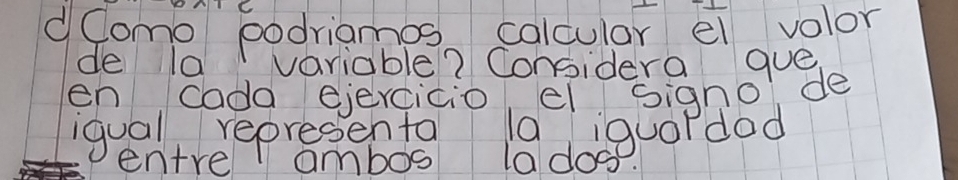 ¿Como podriamos calcular el valor
de la variable? Considera que
en cada ejercicio el signo de
igual representa la igualdad
entre ambos lados.